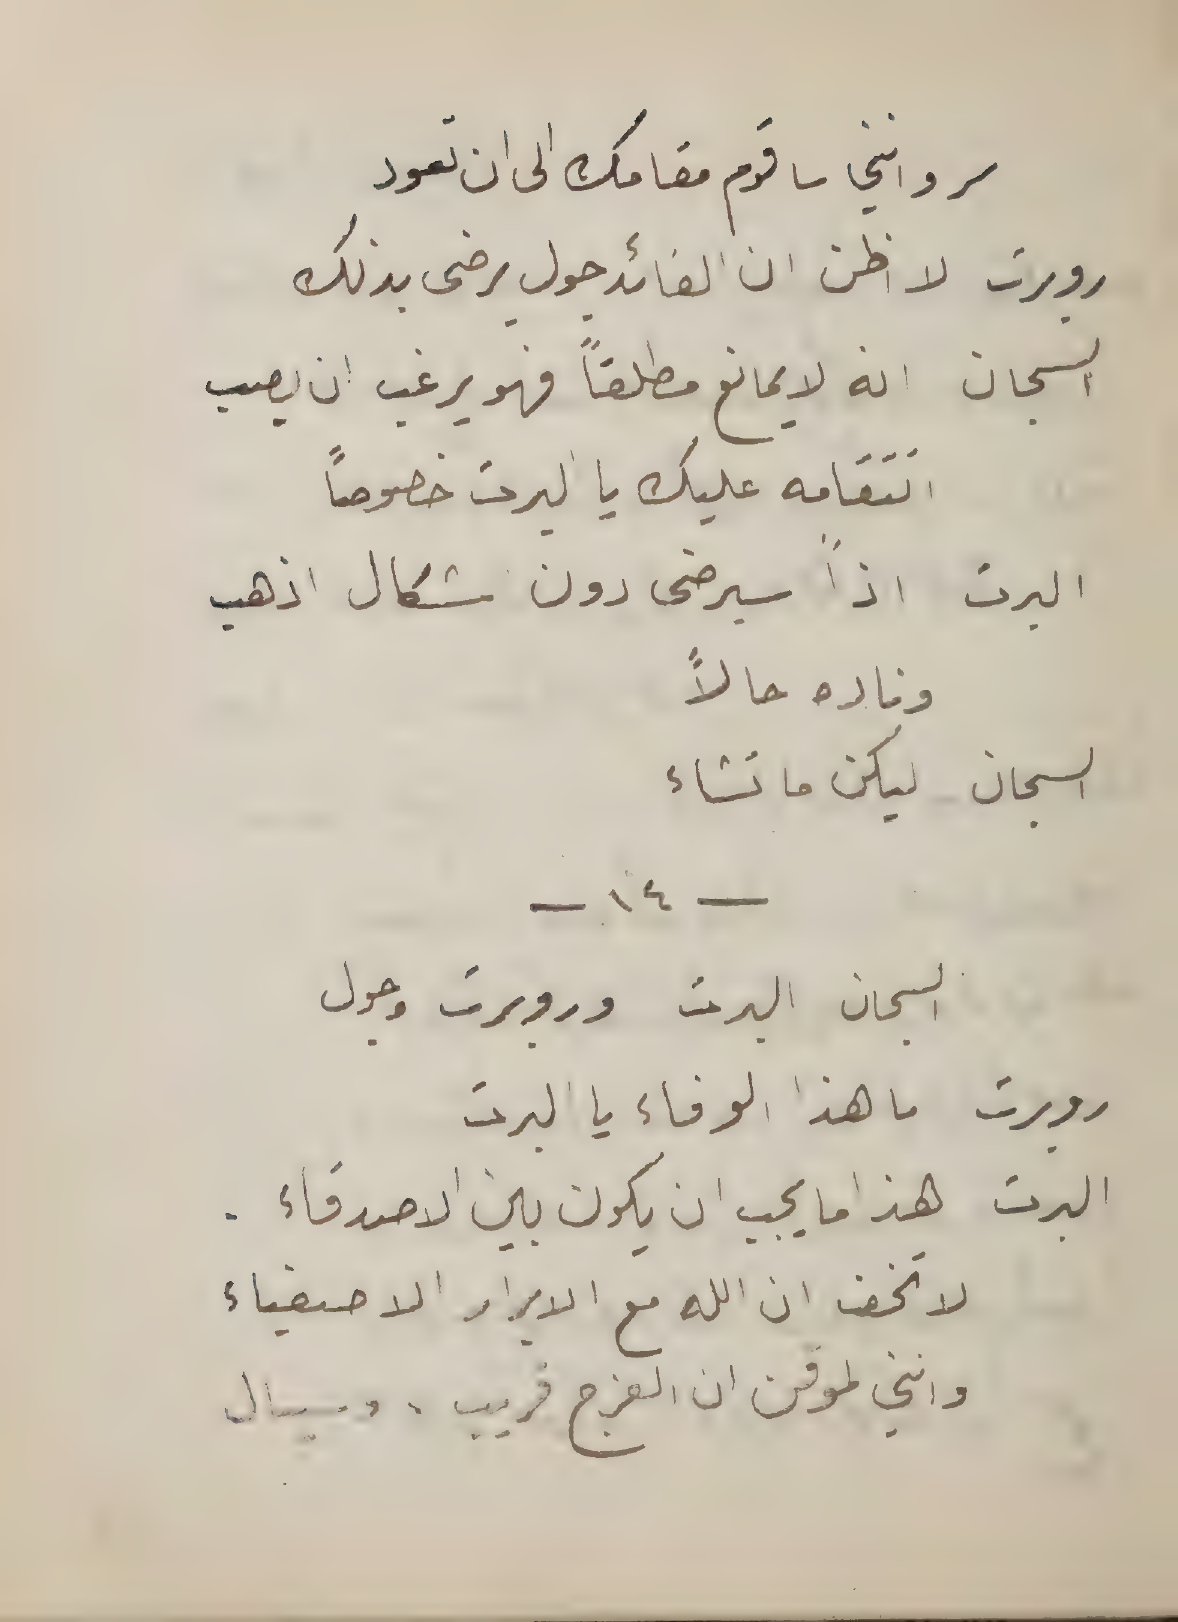 سر وانني ساقوم مقامك الى ان تعود
روبرت لا اظن ان القائد جول يرضى بذلك
السجان انه لا يمانع مطلقاً فهو يرغب ان يصب
انتقامه عليك يا البرت خصوصاً
البرت اذاً سيرضى دون شكال اذهب
وناده حالاً
السجان ليكن ما تشاء
— ١٤ —
السجان البرت وروبرت وجول
روبرت ما هذا الوفاء يا البرت
البرت هذا ما يجب ان يكون بين الاصدقاء .
لا تخف ان الله مع الابرار الاصفياء
وانني لموقن ان الفرج قريب .